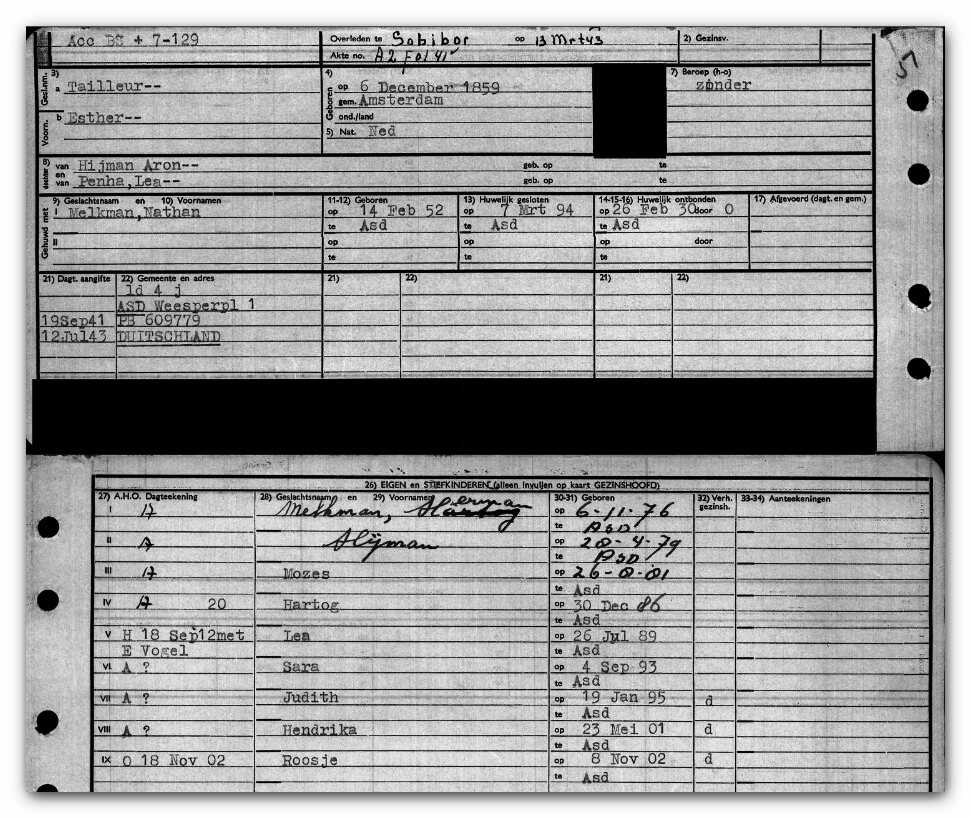 Acc BS + 7-129
Overleden te Sobibor op 13 Mrt 43
2) Gezinsv.
Akte no. A2 Fol 41
5
Gesl.nm. 3) a Tailleur--
4) Geboren op 6 December 1859
gem. Amsterdam
7) Beroep (h-o)
zonder
Voorn. b Esther--
ond./land
5) Nat. Ned
8) dochter van Hijman Aron-- geb. op te
en van Penha, Lea-- geb. op te
Gehuwd met 9) Geslachtsnaam en 10) Voornamen
11-12) Geboren
13) Huwelijk gesloten
14-15-16) Huwelijk ontbonden
17) Afgevoerd (dagt. en gem.)
I Melkman, Nathan
op 14 Feb 52
op 7 Mrt 94
op 26 Feb 30 door O
te Asd
te Asd
te Asd
II
op op op door
te te te
21) Dagt. aangifte 22) Gemeente en adres 21) 22) 21) 22)
ld 4 j
ASD Weesperpl 1
19Sep41 PB 609779
12Jul43 DUITSCHLAND
26) EIGEN en STIEFKINDEREN (alleen invullen op kaart GEZINSHOOFD)
27) A.H.O. Dagteekening 28) Geslachtsnaam en 29) Voornamen 30-31) Geboren 32) Verh. gezinsh. 33-34) Aanteekeningen
I A Melkman, Hartog erman op 6-11-76
te ASD
II A Hijman op 20-4-79
te ASD
III A Mozes op 26-8-81
te Asd
IV A 20 Hartog op 30 Dec 86
te Asd
V H 18 Sep12met Lea op 26 Jul 89
E Vogel te Asd
VI A ? Sara op 4 Sep 93
te Asd
VII A ? Judith op 19 Jan 95 d
te Asd
VIII A ? Hendrika op 23 Mei 01 d
te Asd
IX O 18 Nov 02 Roosje op 8 Nov 02 d
te Asd